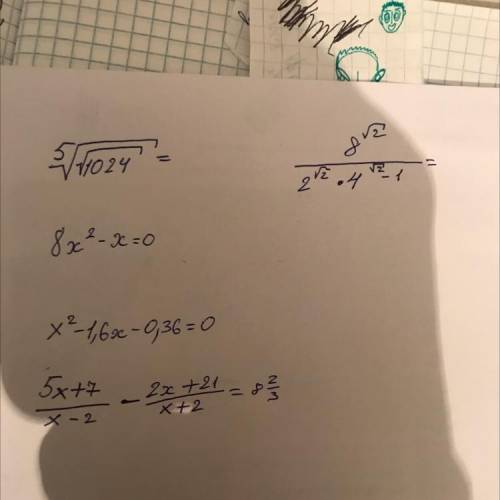 ⁵√√1024 =
8^√2 / (2^√2 · 4^(√2-1)) =
8x² - x = 0
x² - 1,6x - 0,36 = 0
(5x+7)/(x-2) - (2x+21)/(x+2) = 8 2/3